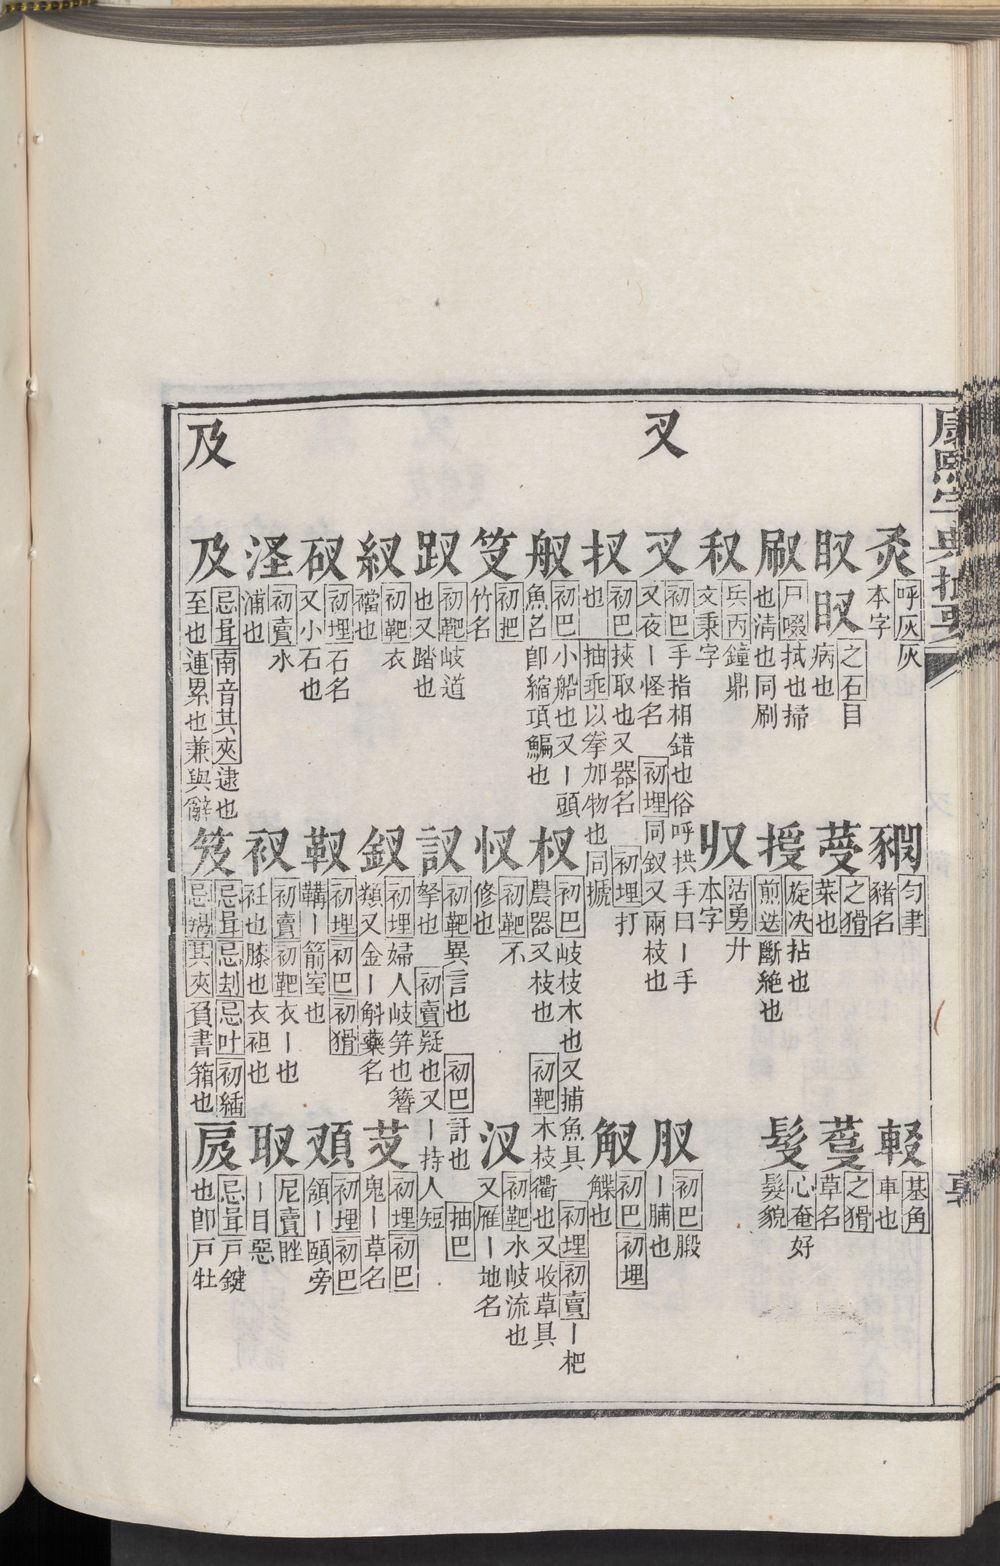 康熙字典撮要
灰 呼灰 灰本字
䝤 勻聿 豬名
䡈 基角 車也
䀏 之石 目病也
蔓 之猾 菜也
之猾 草名
㕞 尸啜 拭也掃也清也同刷
旋決 煎迭 拈也斷絶也
髮 心奄 好髮貌
兵丙 鐘鼎文秉字
収 沽勇 廾本字
叉
叉 初巴 手指相錯也俗呼拱手曰丨手又夜丨怪名 初埋 同釵又兩枝也
肞 初巴 腶丨脯也
扠 初巴 挾取也又器名 初埋 打也 抽乖 以拳加物也同搋
䚨 初巴 初埋 䚨也
舣 初巴 小船也又丨頭魚名卽縮項鯿也
杈 初巴 岐枝木也又捕魚具 初埋 初賣 丨杷農器又枝也 初靶 木枝衢也又收草具
笅 初把 竹名
㣾 初靶 不修也
汊 初靶 水岐流也又雁丨地名
䟕 初靶 岐道也又踏也
訍 初靶 異言也 初巴 訏也 抽巴 拏也 初賣 疑也又丨持人短
衩 初靶 衣襠也
釵 初埋 婦人岐笄也簪類又金丨斛藥名
芆 初埋 初巴 鬼丨草名
砹 初埋 石名又小石也
靫 初埋 初巴 初猾 鞲丨箭室也
頙 初埋 初巴 頷丨頤旁
初賣 水浦也
衩 初賣 初靶 衣丨也衽也膝也衣袒也
尼賣 䀏丨目惡
及
及 忌揖 南音其夾 逮也至也連累也兼與辭
笈 忌揖 忌刦 忌叶 初插 忌謁 其夾 負書箱也
忌揖 戸鍵也卽戸牡